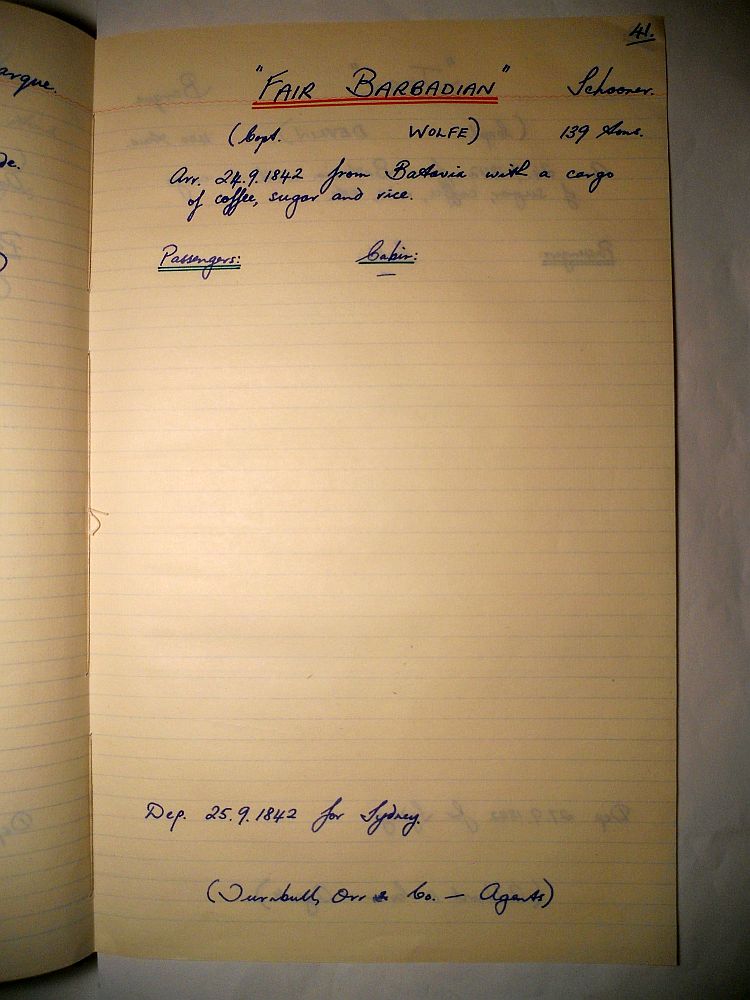 41.
"FAIR BARBADIAN" Schooner.
(Capt. WOLFE) 139 tons.
Arr. 24.9.1842 from Batavia with a cargo
of coffee, sugar and rice.
Passengers: Cabin:
—
Dep. 25.9.1842 for Sydney.
(Turnbull, Orr & Co. — Agents)
arque.
de.